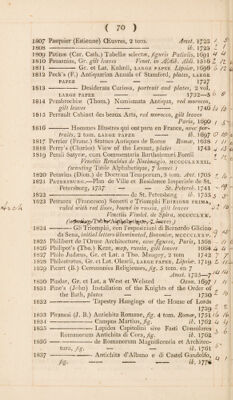 ( 70 )
1807 Pasquier (Estienne) Œuvres, 2 tom. Amst. 1723
1808 ——— il. 1723
1809 Patinæ (Car. Cath.) Tabellæ selectæ, figuris Patavii, 1691
1810 Pausanias, Gr. gilt leaves Venet. in Ædib. Aldi. 1516
1811 ——— Gr. et Lat. Kuhnii, LARGE PAPER Lipsiæ, 1696
1812 Peck's (F.) Antiquarian Annals of Stamford, plates, LARGE
PAPER 1727
1813 ——— Desiderata Curiosa, portrait and plates, 2 vol.
LARGE PAPER 1732—5
1814 Pembrochiæ (Thom.) Numismata Antiqua, red morocco,
gilt leaves 1746
1815 Perrault Cabinet des beaux Arts, red morocco, gilt leaves
Paris, 1690
1816 ——— Hommes Illustres qui ont paru en France, avec por-
traits, 2 tom. LARGE PAPER il. 1697
1817 Perrier (Franc.) Statuæ Antiquæ de Roma Romæ, 1638
1818 Perry's (Charles) View of the Levant, plates 1743
1819 Persii Satyræ, cum Commentariis Bartholomæi Fontii
Venetiis Renaldus de Novimagio, MCCCCLXXXII.
wanting Table Alphabetique, 7 leaves
1820 Petavius (Dion.) de Doctrina Temporum, 3 tom. Ant. 1703
1821 PETERSBURG.—Plan de Ville et Residence Imperiale de St.
Petersburg, 1737 — St. Petersb. 1741
1822 ——— de St. Petersburg il. 1753
1823 Petrarca (Francesco) Sonetti e Triomphi EDITIONE PRIMA,
ruled with red lines, bound in russia, gilt leaves
Venetiis Vindel. de Spira, MCCCCLXX.
1824 ——— Gli Triomphi, con l'esposizioni di Bernardo Glicino
da Sena, initial letters illuminated, Bononiæ, MCCCCLXXV.
1825 Philibert de l'Orme Architecture, avec figures, Paris, 1568
1826 Philipot's (Tho.) Kent, map, russia, gilt leaves 1659
1827 Philo Judæus, Gr. et Lat. a Tho. Mangey, 2 tom 1742
1828 Philostratus, Gr. et Lat. Olearii, LARGE PAPER Lipsiæ, 1709
1829 Picart (B.) Ceremonies Religieuses, fig. 5 tom. en 7
Amst. 1723—7
1830 Pindar, Gr. et Lat. a West et Welsted Oxon. 1697
1831 Pine's (John) Installation of the Knights of the Order of
the Bath, plates — 1730
1832 ——— Tapestry Hangings of the House of Lords
1739
1833 Piranesi (J. B.) Antichita Romane, fig. 4 tom. Romæ, 1756
1834 ——— Campus Martius, fig. il. 1762
1835 ——— Lapides Capitolini sive Fasti Consulares
Romanorum Antichita di Cora, fig. il. 1762
1836 ——— de Romanorum Magnificentia et Architec-
tura, fig. il. 1761
1837 ——— Antichita d'Albano e di Castel Gandolfo,
fig. — il. 1764